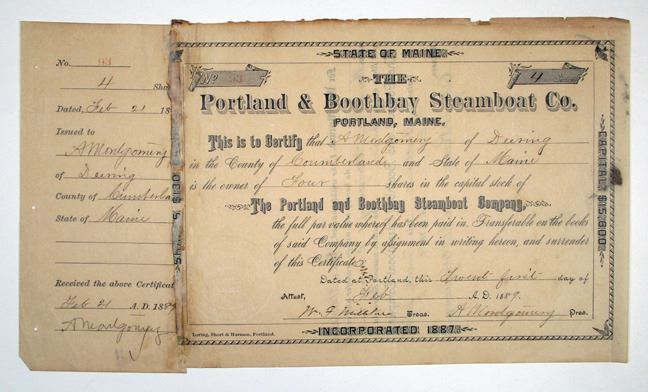 No. 93
4 Sha
Dated, Feb 21 18
Issued to
A Montgomery
of Deering
County of Cumberla
State of Maine
Received the above Certificat
Feb 21 A.D. 1889
A Montgomery
STATE OF MAINE.
No 93
4
THE
Portland & Boothbay Steamboat Co.
PORTLAND, MAINE.
This is to Certify that A Montgomery of Deering
in the County of Coumberland and State of Maine
is the owner of Four shares in the capital stock of
The Portland and Boothbay Steamboat Company,
the full par value whereof has been paid in. Transferable on the books
of said Company by assignment in writing hereon, and surrender
of this Certificate.
Dated at Portland, this Twent first day of
Attest, Feb A.D. 1889.
W. F. Treas. A Montgomery Pres.
Loring, Short & Harmon, Portland.
INCORPORATED 1887.
CAPITAL, $15,600.